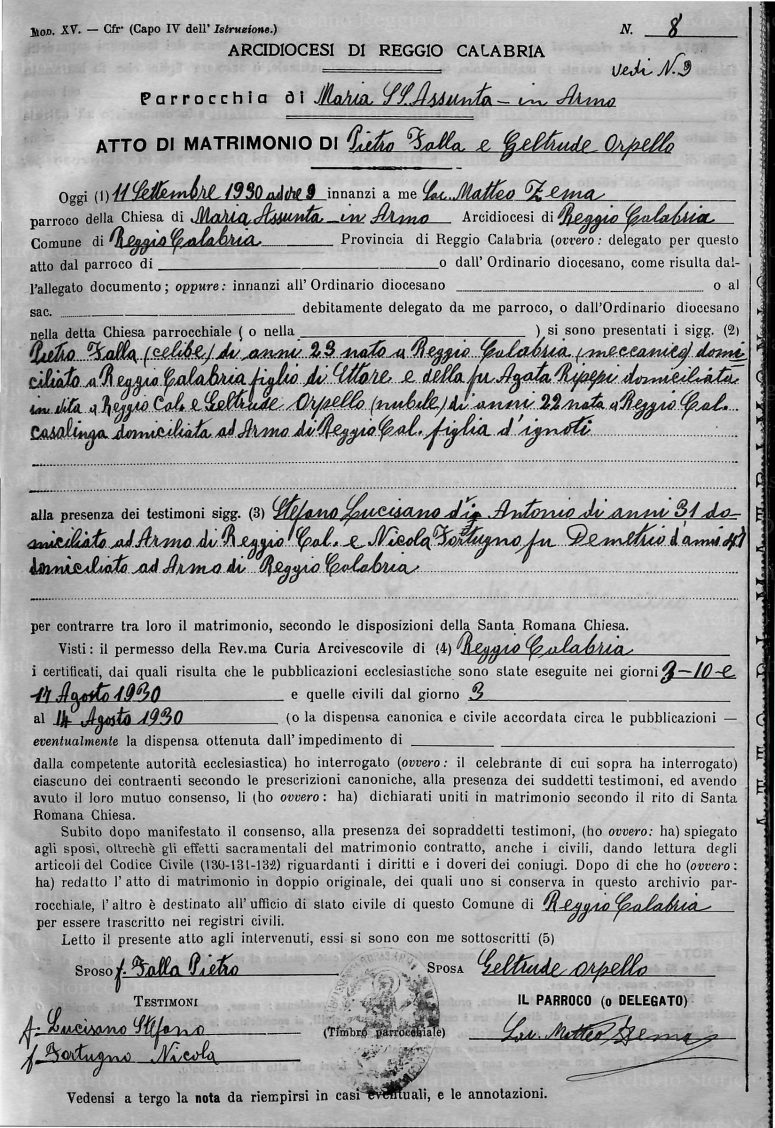 MOD. XV. — Cfr (Capo IV dell' Istruzione.) N. 8
ARCIDIOCESI DI REGGIO CALABRIA
vedi N. 9
Parrocchia di Maria SS. Assunta - in Armo
ATTO DI MATRIMONIO DI Pietro Falla e Geltrude Orpello
Oggi (1) 11 Settembre 1930 ad ore 9 innanzi a me Sac. Matteo Zema
parroco della Chiesa di Maria Assunta - in Armo Arcidiocesi di Reggio Calabria
Comune di Reggio Calabria Provincia di Reggio Calabria (ovvero: delegato per questo
atto dal parroco di o dall' Ordinario diocesano, come risulta dal-
l'allegato documento; oppure: innanzi all' Ordinario diocesano o al
sac. debitamente delegato da me parroco, o dall'Ordinario diocesano
nella detta Chiesa parrocchiale ( o nella ) si sono presentati i sigg. (2)
Pietro Falla (celibe) di anni 23 nato a Reggio Calabria (meccanico) domi=
ciliato a Reggio Calabria figlio di Ettore e della fu Agata Ripepi domiciliata
in vita a Reggio Cal. e Geltrude Orpello (nubile) di anni 22 nata a Reggio Cal.
casalinga domiciliata ad Armo di Reggio Cal. figlia d'ignoti
alla presenza dei testimoni sigg. (3) Stefano Lucisano di Antonio di anni 31 do-
miciliato ad Armo di Reggio Cal. e Nicola Fortugno fu Demetrio d'anni
domiciliato ad Armo di Reggio Calabria
per contrarre tra loro il matrimonio, secondo le disposizioni della Santa Romana Chiesa.
Visti: il permesso della Rev.ma Curia Arcivescovile di (4) Reggio Calabria
i certificati, dai quali risulta che le pubblicazioni ecclesiastiche sono state eseguite nei giorni 3-10-e
17 Agosto 1930 e quelle civili dal giorno 3
al 14 Agosto 1930 (o la dispensa canonica e civile accordata circa le pubblicazioni —
eventualmente la dispensa ottenuta dall'impedimento di
dalla competente autorità ecclesiastica) ho interrogato (ovvero: il celebrante di cui sopra ha interrogato)
ciascuno dei contraenti secondo le prescrizioni canoniche, alla presenza dei suddetti testimoni, ed avendo
avuto il loro mutuo consenso, li (ho ovvero: ha) dichiarati uniti in matrimonio secondo il rito di Santa
Romana Chiesa.
Subito dopo manifestato il consenso, alla presenza dei sopraddetti testimoni, (ho ovvero: ha) spiegato
agli sposi, oltrechè gli effetti sacramentali del matrimonio contratto, anche i civili, dando lettura degli
articoli del Codice Civile (130-131-132) riguardanti i diritti e i doveri dei coniugi. Dopo di che ho (ovvero:
ha) redatto l' atto di matrimonio in doppio originale, dei quali uno si conserva in questo archivio par-
rocchiale, l'altro è destinato all'ufficio di stato civile di questo Comune di Reggio Calabria
per essere trascritto nei registri civili.
Letto il presente atto agli intervenuti, essi si sono con me sottoscritti (5)
SPOSO f. Falla Pietro SPOSA Geltrude Orpello
TESTIMONI IL PARROCO (o DELEGATO)
f. Lucisano Stefano (Timbro parrocchiale) Sac. Matteo Zema
f. Fortugno Nicola
Vedensi a tergo la nota da riempirsi in casi eventuali, e le annotazioni.